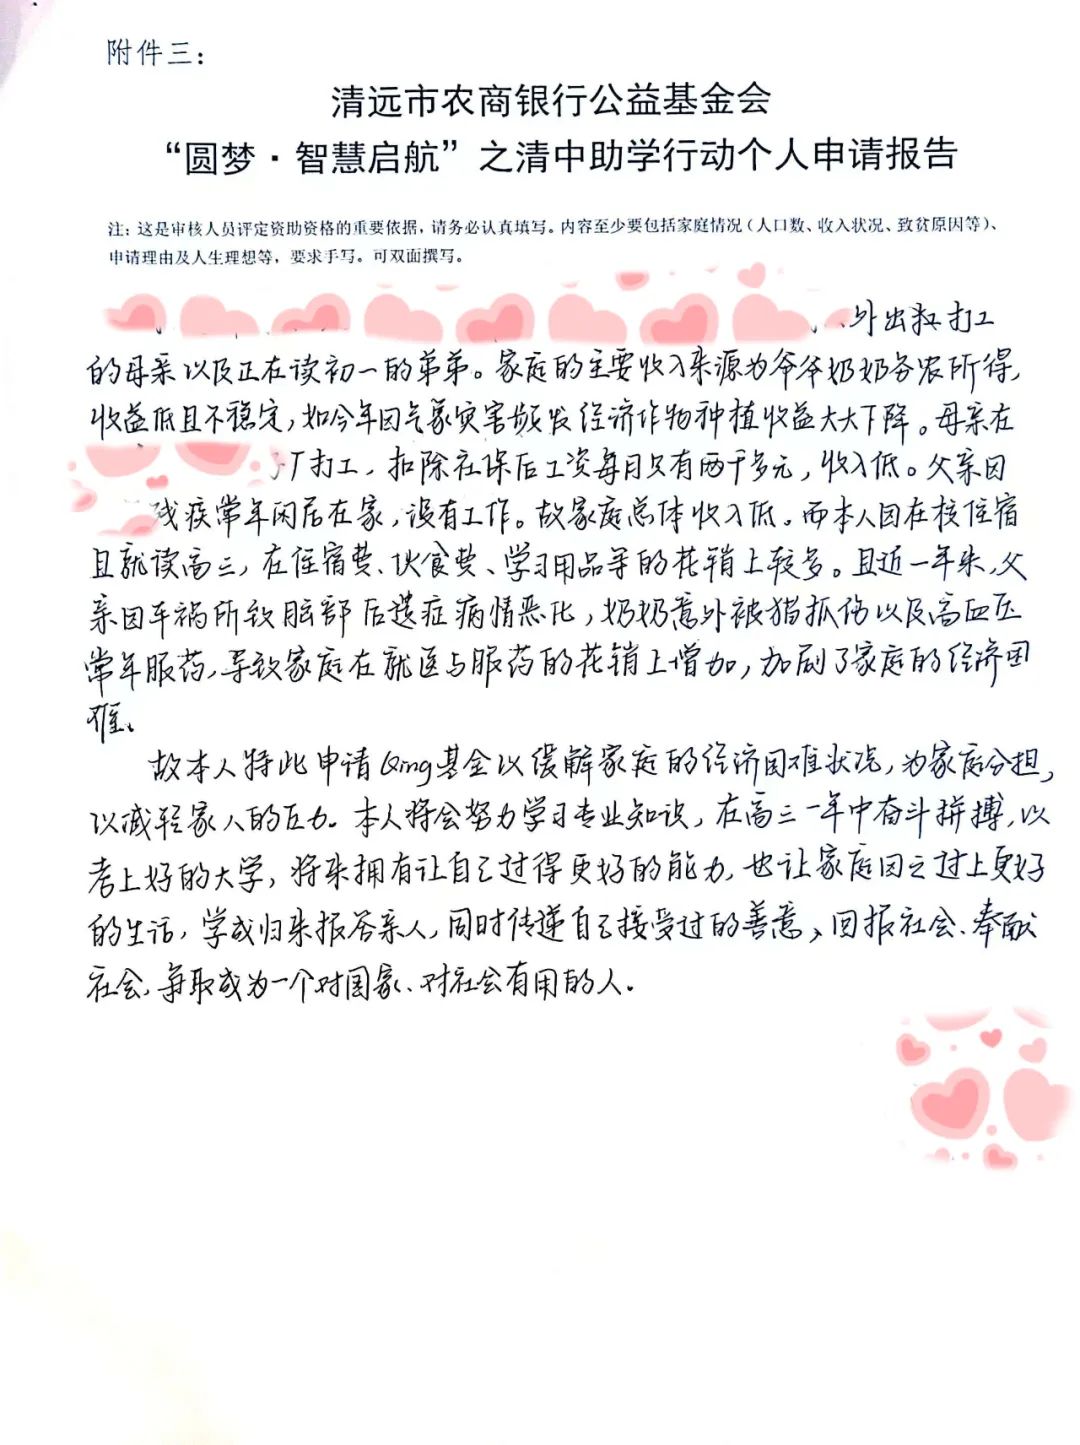 附件三：
清远市农商银行公益基金会
“圆梦·智慧启航”之清中助学行动个人申请报告
注：这是审核人员评定资助资格的重要依据，请务必认真填写。内容至少要包括家庭情况（人口数、收入状况、致贫原因等）、
申请理由及人生理想等，要求手写。可双面撰写。
外出打工
的母亲以及正在读初一的弟弟。家庭的主要收入来源为爷爷奶奶务农所得，
收益低且不稳定，如今年因气象灾害频发经济作物种植收益大大下降。母亲在
厂打工，扣除社保后工资每月只有两千多元，收入低。父亲因
残疾常年闲居在家，没有工作。故家庭总体收入低。而本人因在校住宿
且就读高三，在住宿费、伙食费、学习用品等的花销上较多。且近一年来，父
亲因车祸所致脑部后遗症病情恶化，奶奶意外被猫抓伤以及高血压
常年服药，导致家庭在就医与服药的花销上增加，加剧了家庭的经济困
难。
故本人特此申请Qing基金以缓解家庭的经济困难状况，为家庭分担，
以减轻家人的压力。本人将会努力学习专业知识，在高三一年中奋斗拼搏，以
考上好的大学，将来拥有让自己过得更好的能力，也让家庭因之过上更好
的生活，学成归来报答亲人，同时传递自己接受过的善意，回报社会、奉献
社会，争取成为一个对国家、对社会有用的人。